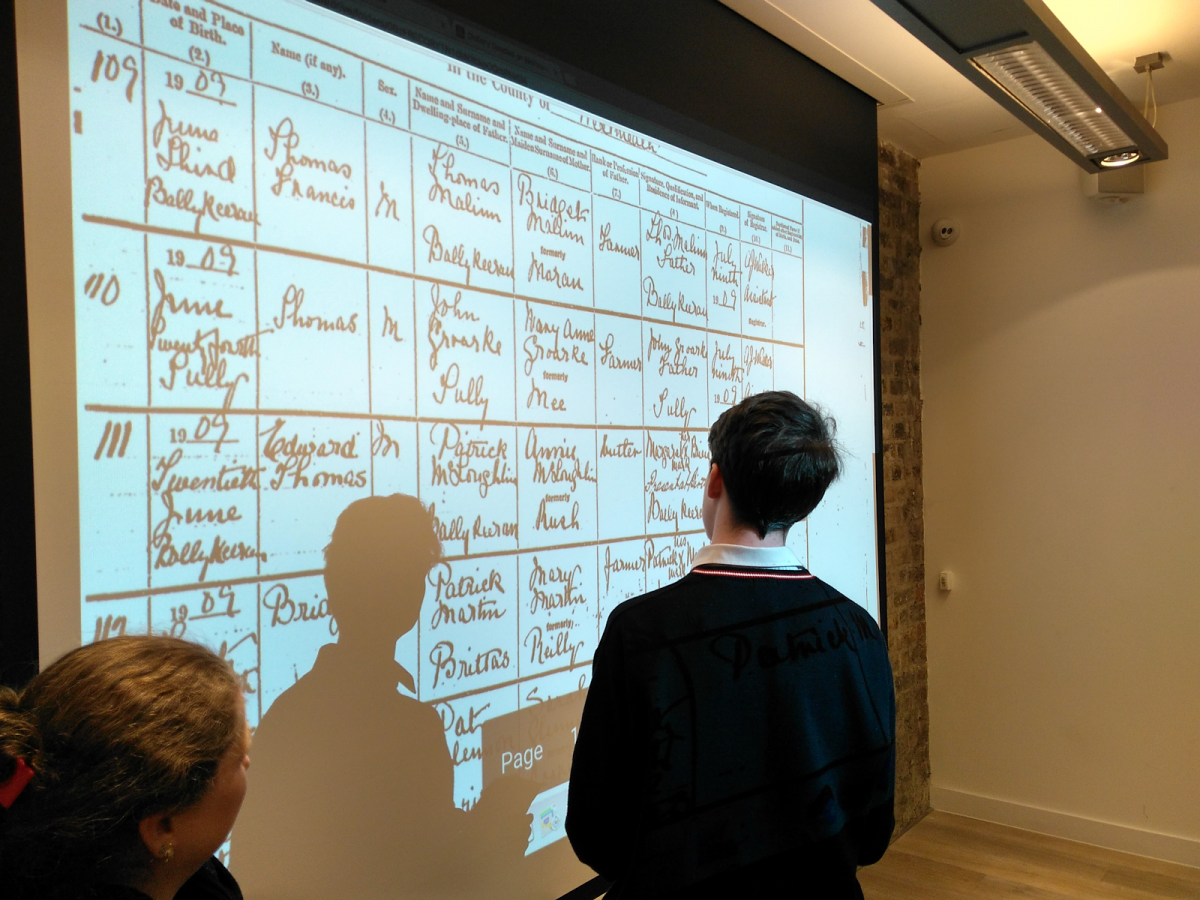 In the County of
(1.) Date and Place of Birth. (2.) Name (if any). (3.) Sex. (4.) Name and Surname and Dwelling-place of Father. (5.) Name and Surname and Maiden Surname of Mother. (6.) Rank or Profession of Father. (7.) Signature, Qualification, and Residence of Informant. (8.) When Registered. (9.) Signature of Registrar. (10.)
109 1909 June Third Ballykeeran Thomas Francis M Thomas Malinn Ballykeeran Bridget Malinn formerly Moran Farmer Thos Malinn Father Ballykeeran July ninth 1909 Registrar.
110 1909 June Twenty fourth Tully Thomas M John Groarke Tully Mary Anne Groarke formerly Mee Farmer John Groarke Father Tully July ninth 1909
111 1909 Twentieth June Ballykeeran Edward Thomas M Patrick McLoughlin Ballykeeran Annie McLoughlin formerly Rush Margaret
112 1909 Brid Patrick Martin Brittas Mary Martin formerly Reilly Farmer Patrick
Pat
Page 1
Patrick M